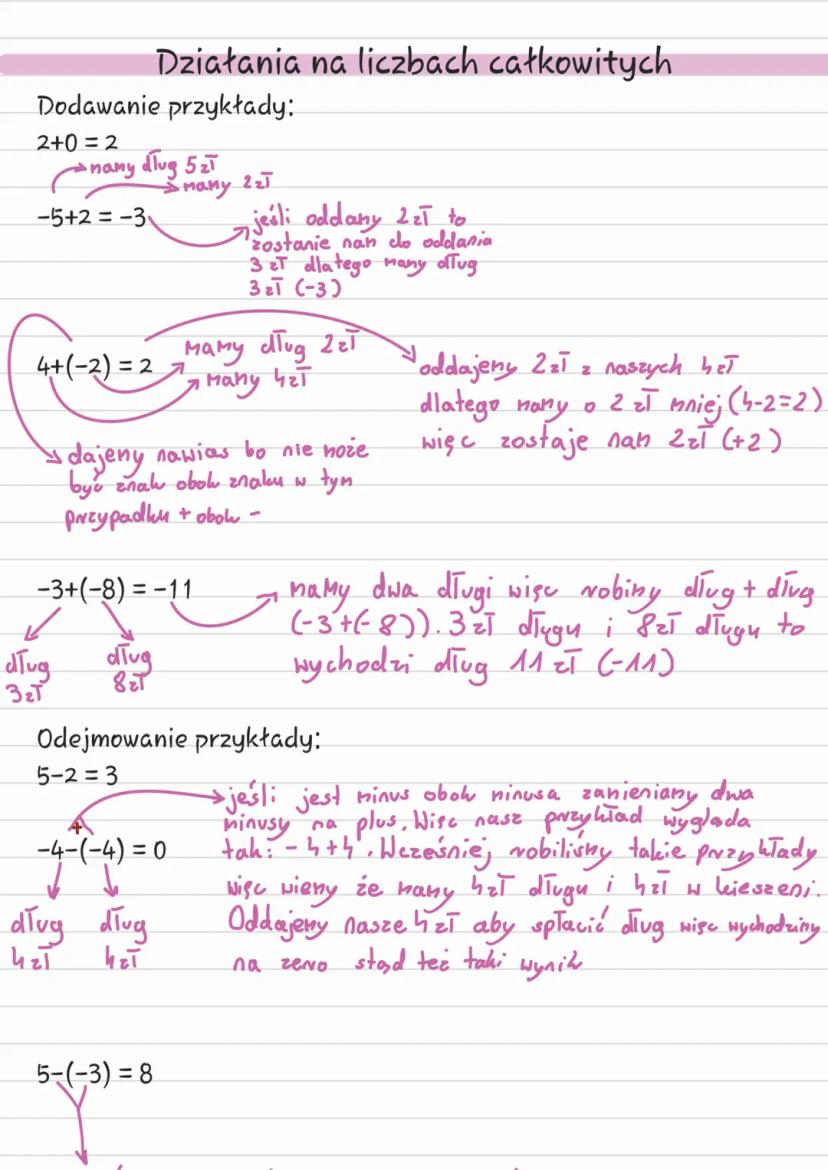 Działania na liczbach całkowitych
Dodawanie przykłady:
2+0 = 2
mamy dług 5zł
mamy 2zł
-5+2 = -3
jeśli oddamy 2zł to
zostanie nam do oddania
3 zł dlatego mamy dług
3zł (-3)
4+(-2) = 2
mamy dług 2zł
mamy 4zł
oddajemy 2zł z naszych 4zł
dlatego mamy o 2 zł mniej (4-2=2)
więc zostaje nam 2zł (+2)
dajemy nawias bo nie może
być znak obok znaku w tym
przypadku + obok -
-3+(-8) = -11
mamy dwa długi więc robimy dług + dług
(-3+(-8)). 3zł długu i 8zł długu to
wychodzi dług 11 zł (-11)
dług
3zł
dług
8zł
Odejmowanie przykłady:
5-2 = 3
jeśli jest minus obok minusa zamieniamy dwa
minusy na plus. Więc nasz przykład wygląda
+
-4-(-4) = 0
tak: -4+4. Wcześniej robiliśmy takie przykłady
więc wiemy że mamy 4zł długu i 4zł w kieszeni.
Oddajemy nasze 4zł aby spłacić dług więc wychodzimy
na zero stąd też taki wynik
dług
4zł
dług
4zł
5-(-3) = 8